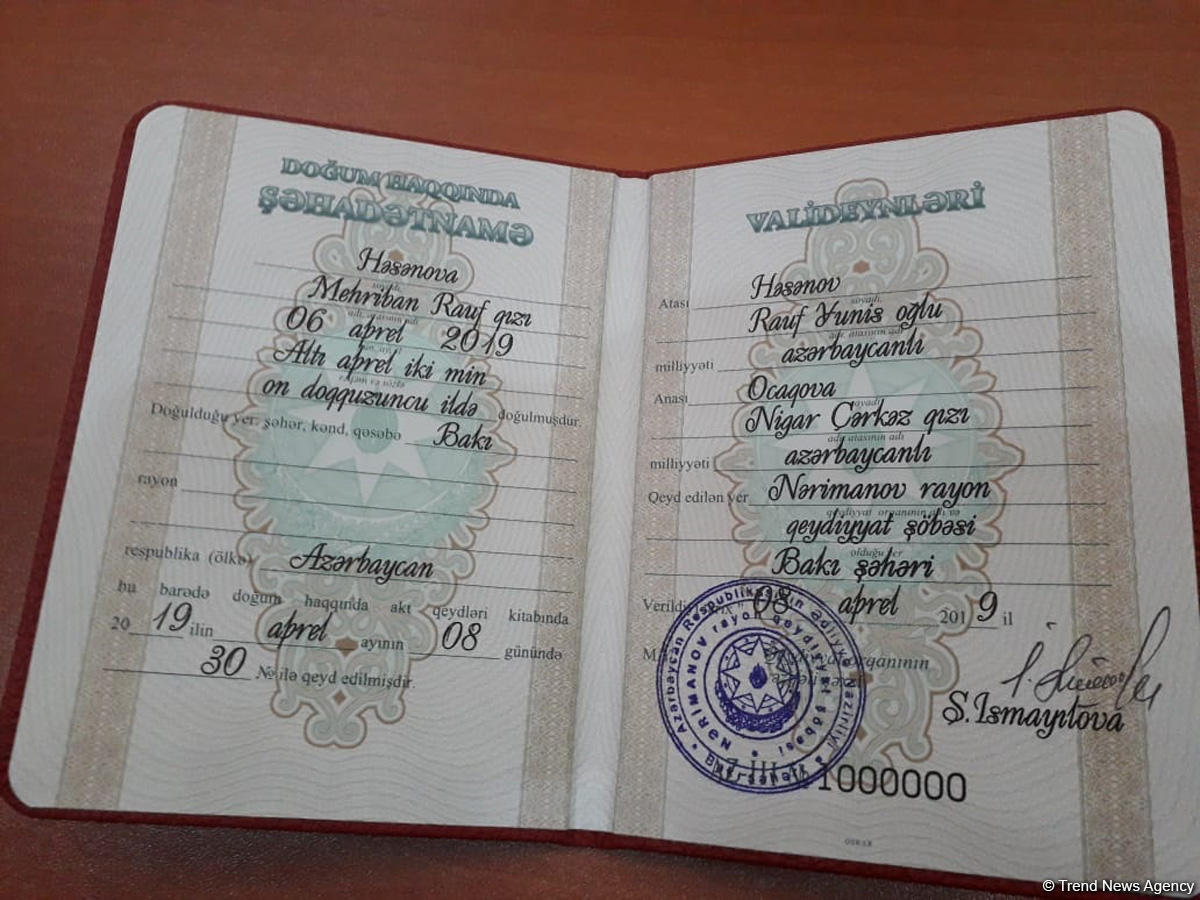 DOĞUM HAQQINDA
ŞƏHADƏTNAMƏ
Həsənova
soyadı
Mehriban Rauf qızı
adı, atasının adı
06 aprel 2019
Altı aprel iki min
rəqəm və sözlə
on doqquzuncu ildə doğulmuşdur.
Doğulduğu yer: şəhər, kənd, qəsəbə Bakı
rayon
respublika (ölkə) Azərbaycan
bu barədə doğum haqqında akt qeydləri kitabında
20 19 ilin aprel ayının 08 günündə
30 № ilə qeyd edilmişdir.
VALİDEYNLƏRİ
Atası Həsənov
soyadı
Rauf Yunis oğlu
adı, atasının adı
milliyyəti azərbaycanlı
Anası Ocaqova
soyadı
Nigar Çərkəz qızı
adı, atasının adı
milliyyəti azərbaycanlı
Qeyd edilən yer Nərimanov rayon
qeydiyyat orqanının adı və
qeydiyyat şöbəsi
olduğu yer
Bakı şəhəri
08 aprel 2019 il
orqanının
Ş.Ismayılova
Azərbaycan Respublikasının Ədliyyə Nazirliyi
NƏRİMANOV rayon qeydiyyat şöbəsi
1000000
© Trend News Agency